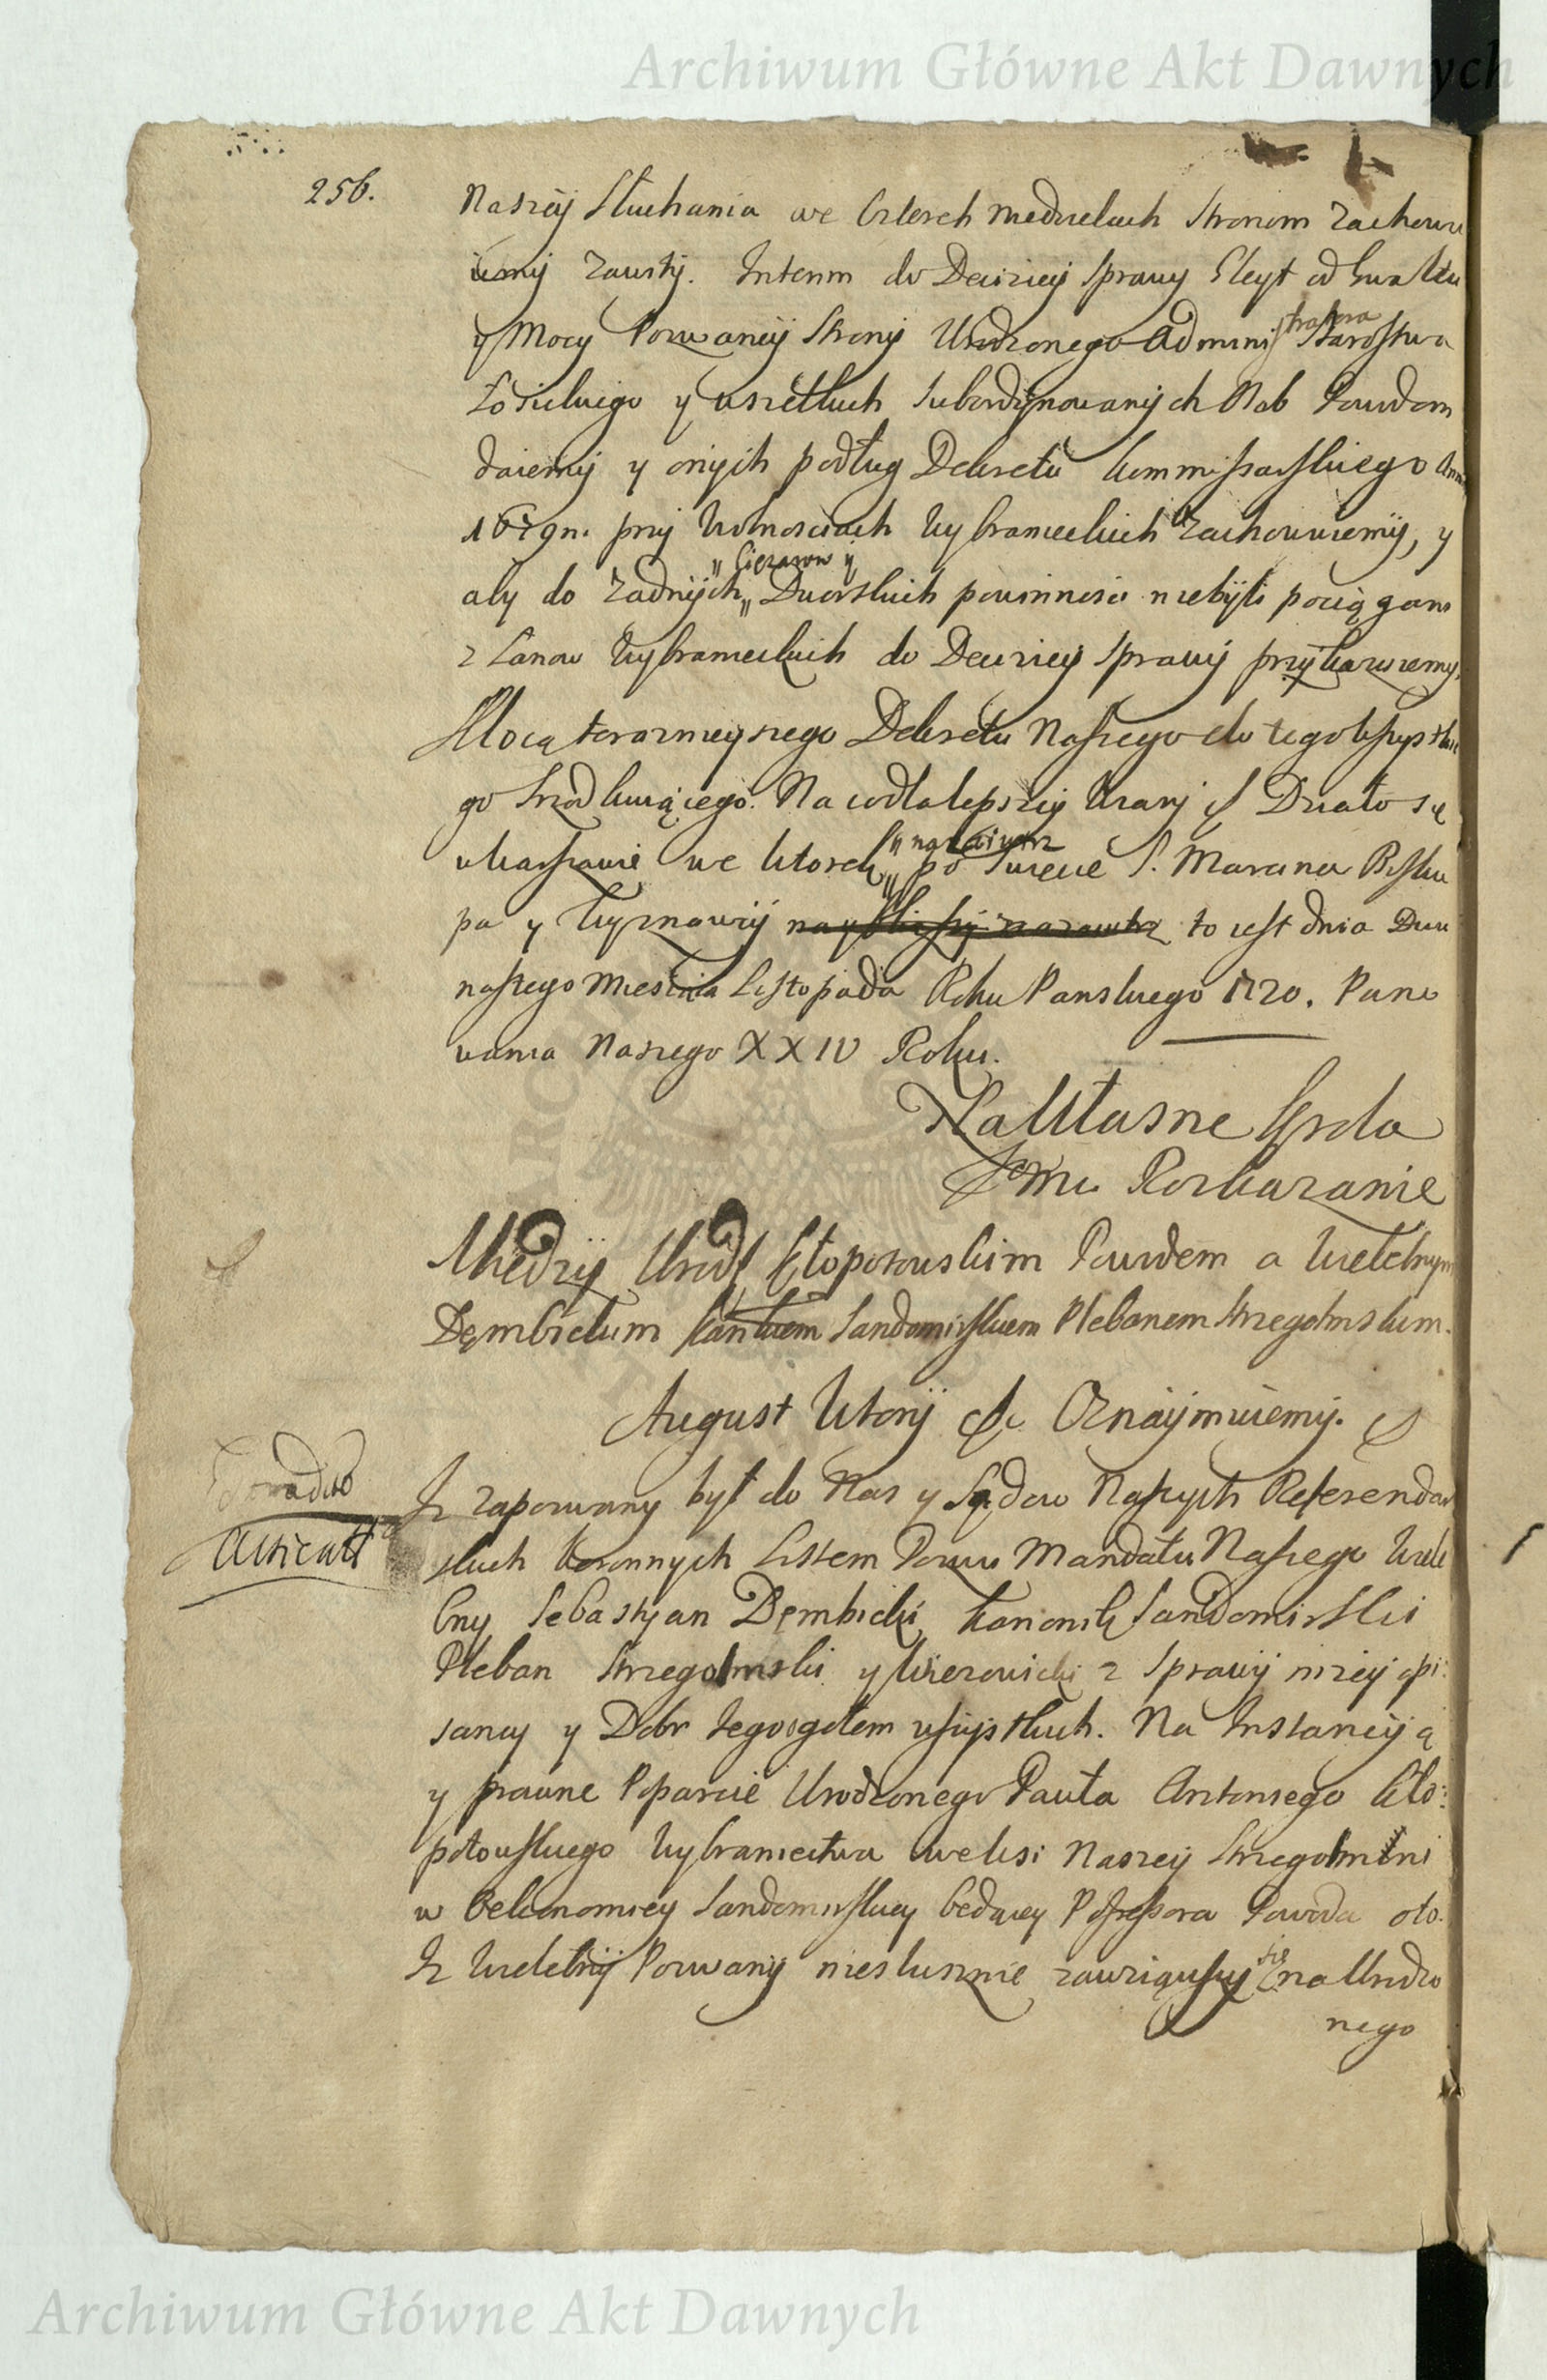 Archiwum Główne Akt Dawnych
256.
Naszey Słuchania we Czterech niedzielach Stronom zachowu
iemy zawity. Interim do Deciziey Sprawy Gleyt od Gwałtu
y Mocy Pozwaney Strony Urodzonego Administratora Starostwa
Łosickiego y wszetkich Subordynowanych Osob Powodom
daiemy y onych podług Dekretu Kommissarskiego Anni
1679n. przy Wolnosciach Wybranieckich zachowuiemy, y
aby do zadnych „Cięzarow y„ Dworskich powinnosci niebyli pociągani
z Łanow Wybranieckich do Deciziey Sprawy przykazuiemy,
Mocą teraznieyszego Dekretu Naszego do tego wszystkie
go Srzodkuiącego. Na co dla lepszey Wiary &c Działo się
w Warszawie we Wtorek „nazaiutrz„ po Swięcie S. Marcina Bisku
pa y Wyznawcy to iest dnia Dwu
nastego Miesiąca Listopada Roku Panskiego 1720. Pano
wania Naszego XXIV Roku.
Na Własne Krola
Jmci Rozkazanie
Między Urodz Kłopotowskim Powodem a Wielebnym
Dembickim Kanikiem Sandomirskiem Plebanem Strzegomskim.
August Wtory &c Oznaymuiemy. &c
Iz zapozwany był do Nas y Sądow Naszych Referendar
skich Koronnych Listem Pozwu Mandatu Naszego Wiele
bny Sebastyan Dembicki Kanonik Sandomirski
Pleban Strzegomski y Wierowicki z Sprawy nizey opi:
saney y Dobr Jego ogołem wszystkich. Na Instancyą
y prawne Poparcie Urodzonego Pawła Antoniego Kło:
potowskiego Wybraniectwa we Wsi Naszey Strzegomini
w Oekonomiey Sandomirskiey będącey Possessora Powoda oto.
Iz Wielebny Pozwany niesłusznie zawziąwszy się na Urodzo
nego
Archiwum Główne Akt Dawnych